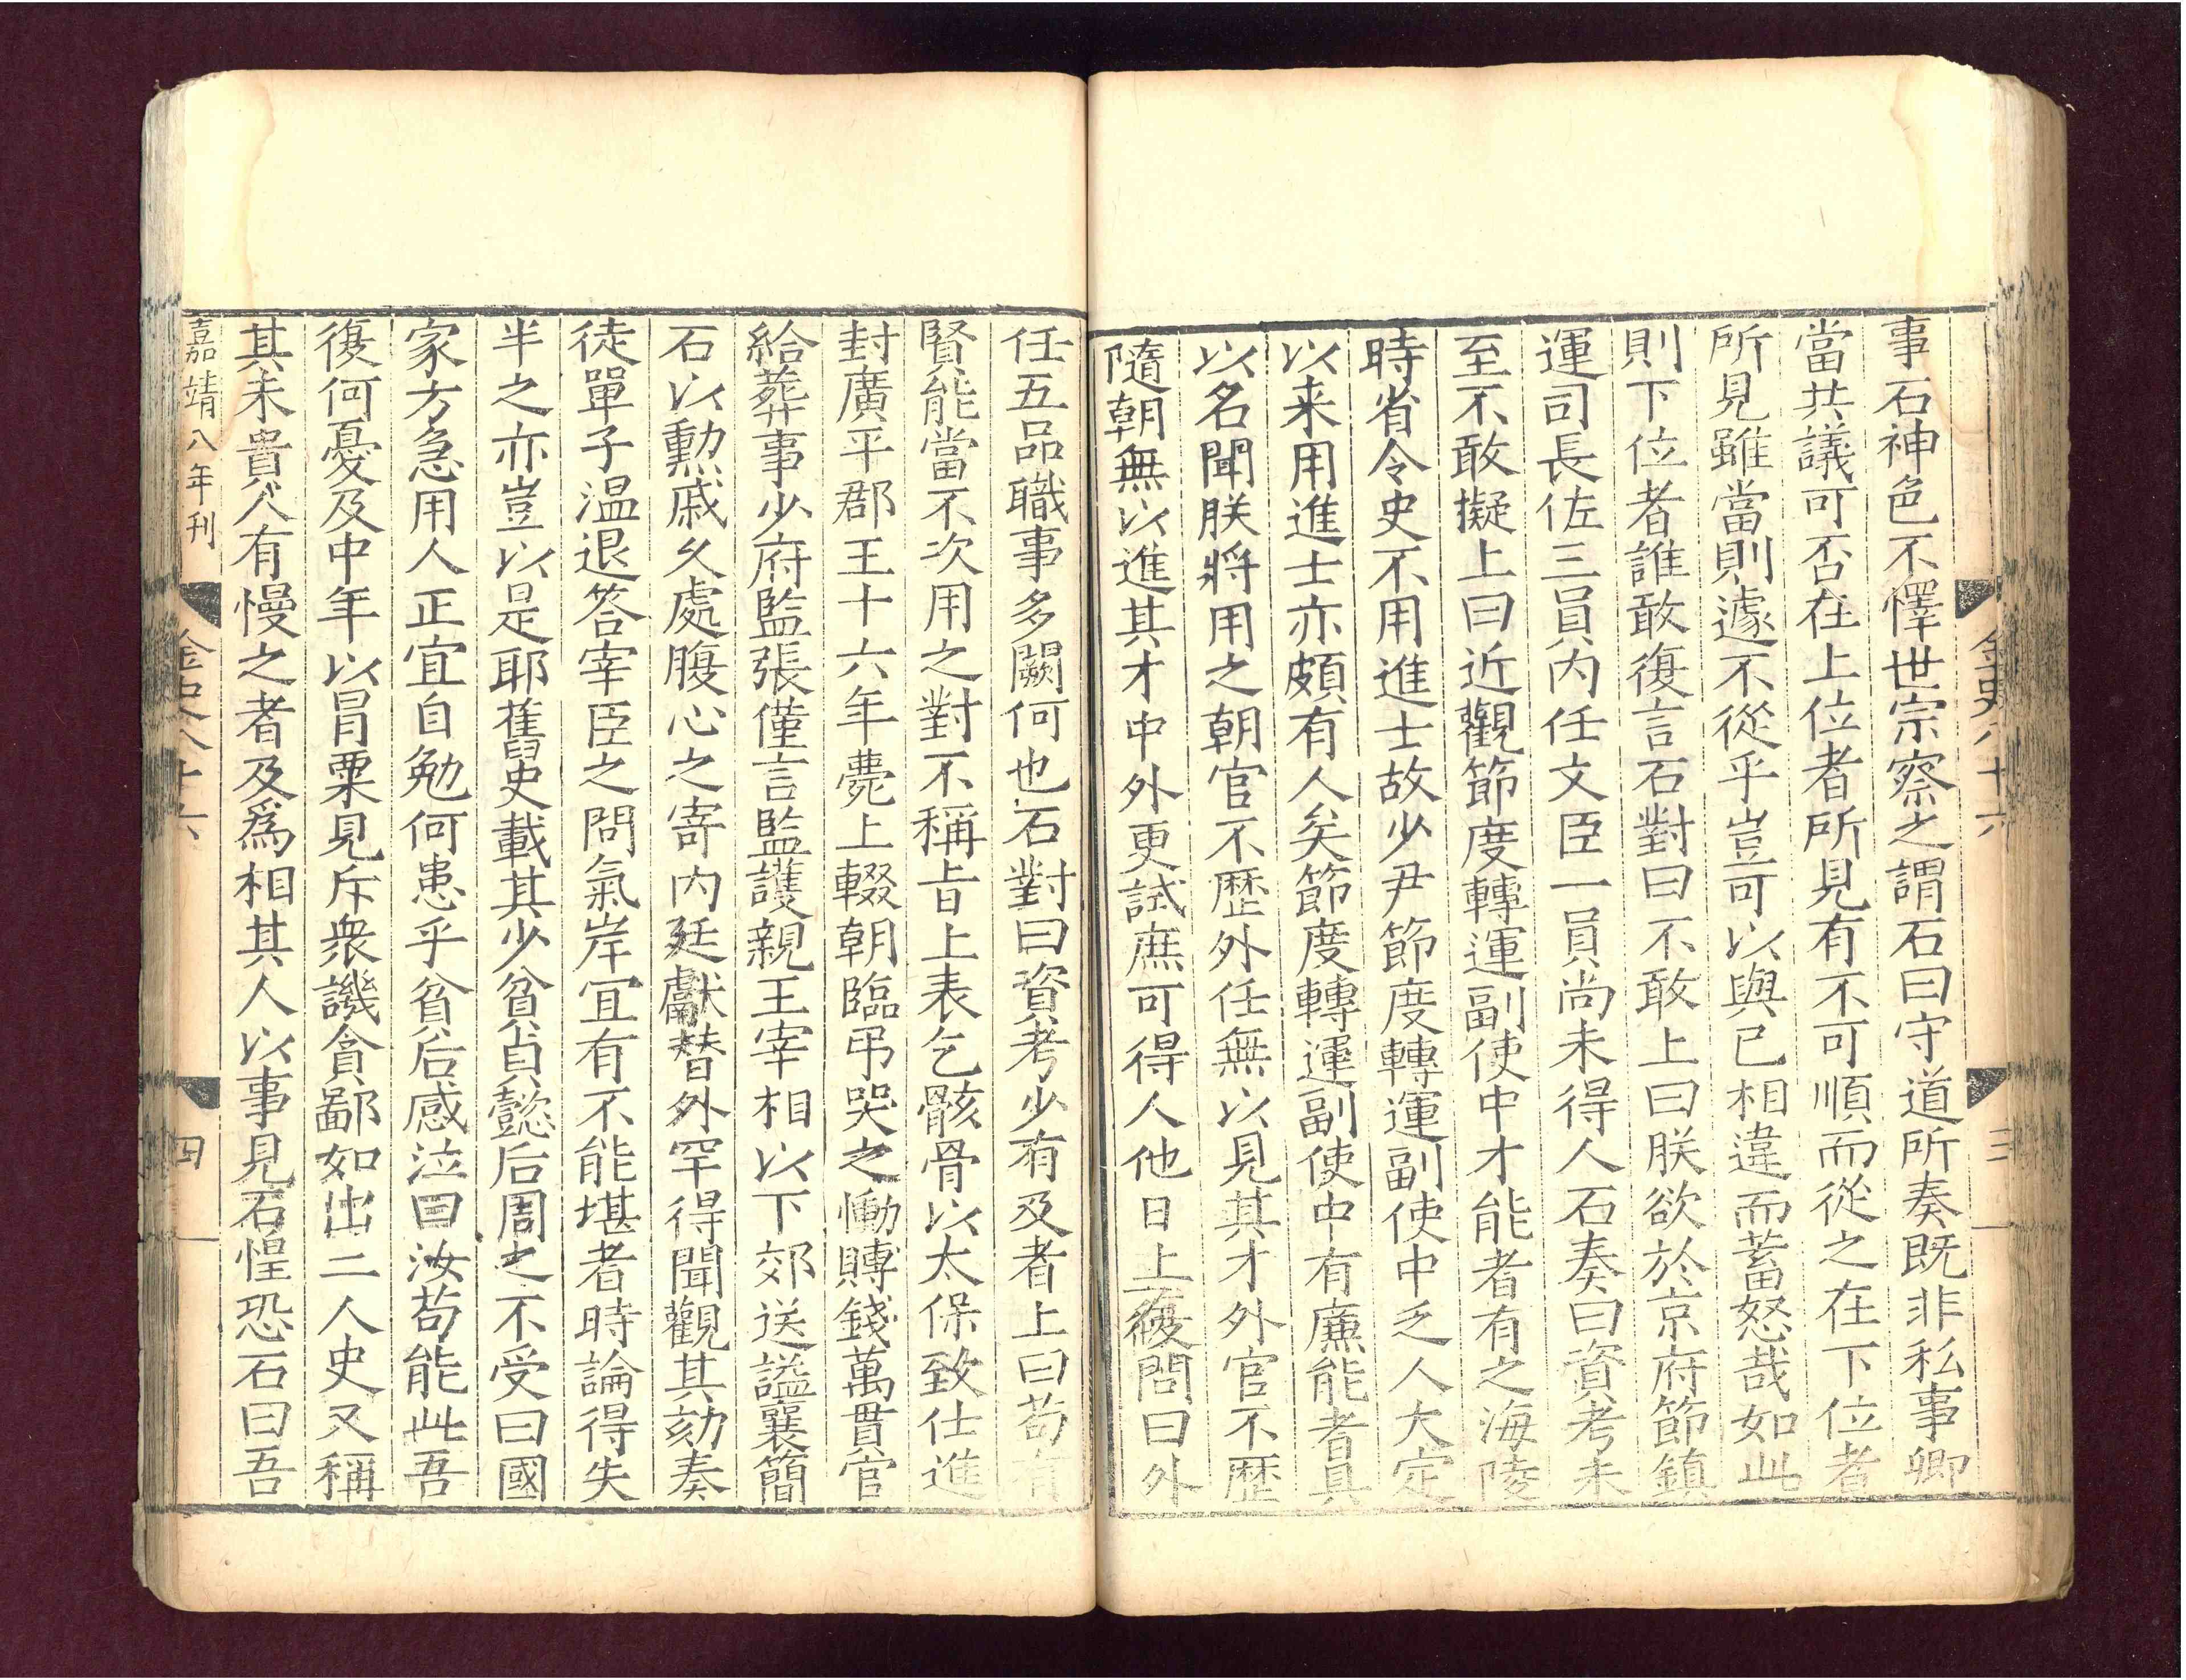 金史八十六
三
事石神色不懌世宗察之謂石曰守道所奏既非私事卿
當共議可否在上位者所見有不可順而從之在下位者
所見雖當則遽不從乎豈可以與已相違而蓄怒哉如此
則下位者誰敢復言石對曰不敢上曰朕欲於京府節鎮
運司長佐三員内任文臣一員尚未得人石奏曰資考未
至不敢擬上曰近觀節度轉運副使中才能者有之海陵
時省令史不用進士故少尹節度轉運副使中乏人大定
以来用進士亦頗有人矣節度轉運副使中有廉能者具
以名聞朕將用之朝官不歴外任無以見其才外官不歴
隨朝無以進其才中外更試庶可得人他日上復問曰外
任五品職事多闕何也石對曰資考少有及者上曰苟有
賢能當不次用之對不稱旨上表乞骸骨以太保致仕進
封廣平郡王十六年薨上輟朝臨弔哭之慟賻錢萬貫官
給葬事少府監張僅言監護親王宰相以下郊送謚襄簡
石以勲戚久處腹心之寄内廷獻替外罕得聞觀其劾奏
徒單子温退答宰臣之問氣岸宜有不能堪者時論得失
半之亦豈以是耶舊史載其少貧貞懿后周之不受曰國
家方急用人正宜自勉何患乎貧后感泣曰汝苟能此吾
復何憂及中年以冒粟見斥衆譏貪鄙如出二人史又稱
其未貴人有慢之者及爲相其人以事見石惶恐石曰吾
嘉靖八年刊
金史八十六
四